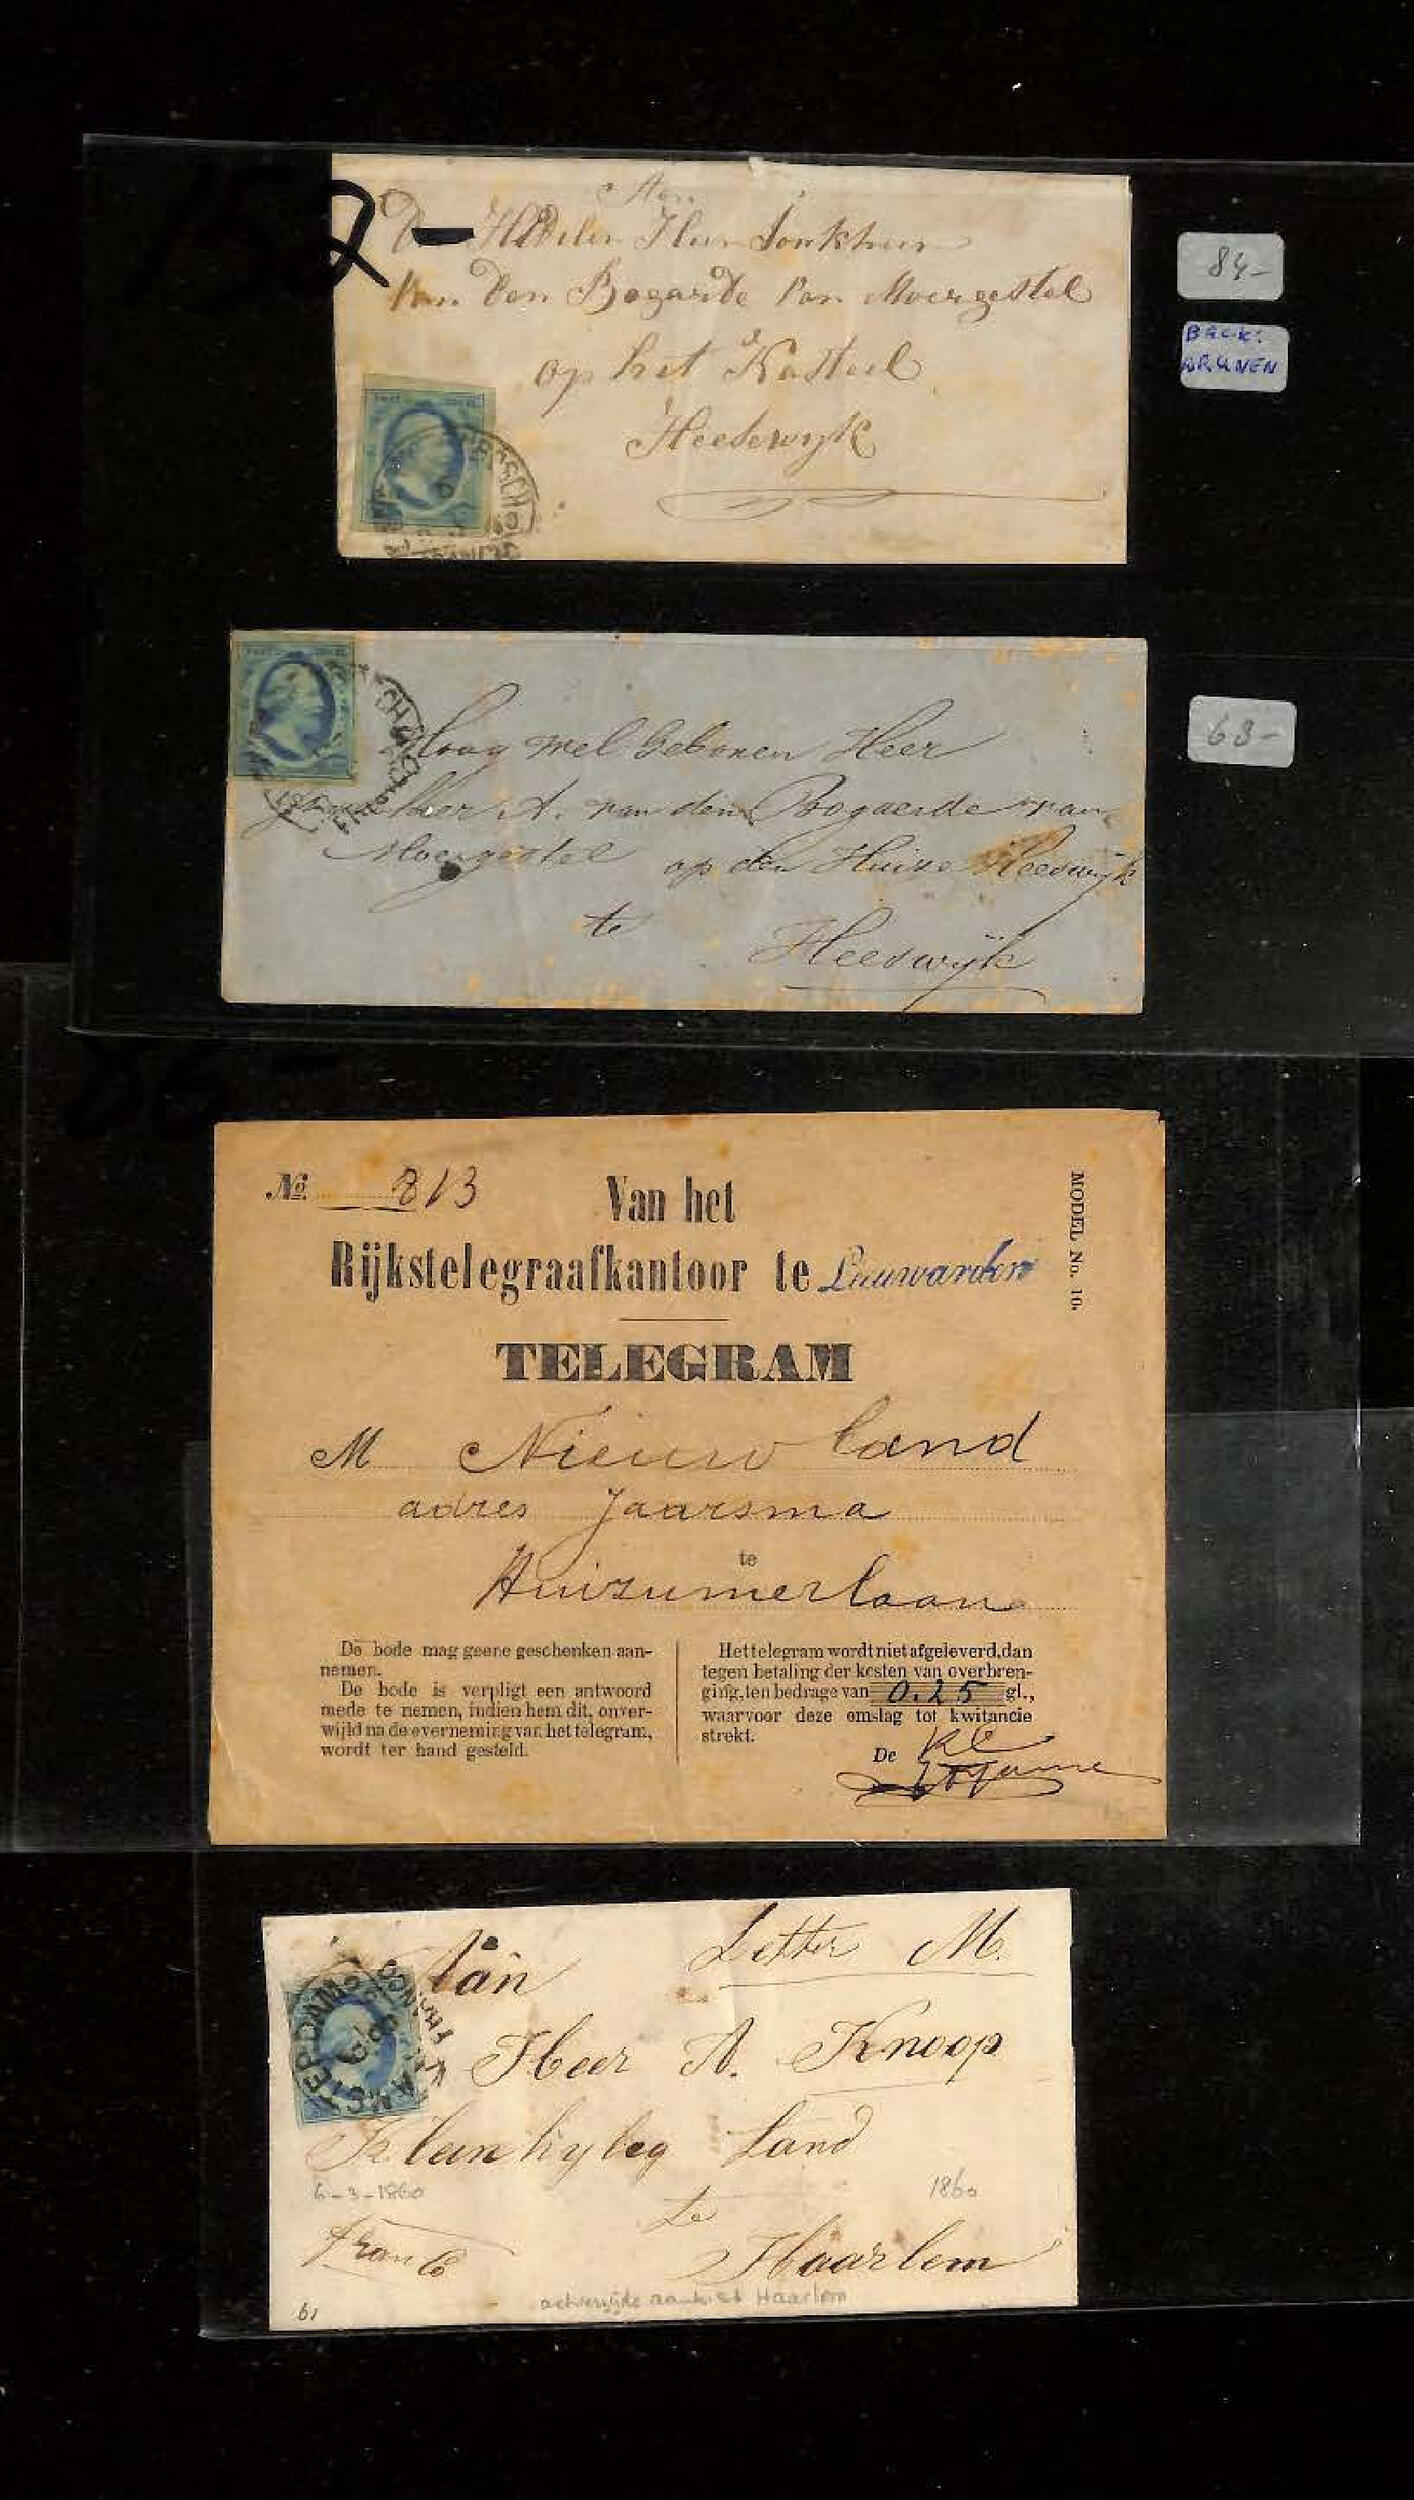 Aan
Van Den Bogarde Van Moergestel
op het Kasteel
Heeswyk
84-
BACK:
DRUNEN
Hoog wel Geboren Heer
A. van den Bogaerde van
Moergestel op den Huize Heeswijk
te
Heeswijk
63-
No. 813
Van het
MODEL No. 10.
Rijkstelegraafkantoor te Leeuwarden
TELEGRAM
M Nieuwland
adres Jaarsma
te
Huizumerlaan
De bode mag geene geschenken aan-
nemen.
De bode is verpligt een antwoord
mede te nemen, indien hem dit, onver-
wijld na de overneming van het telegram,
wordt ter hand gesteld.
Het telegram wordt niet afgeleverd, dan
tegen betaling der kosten van overbren-
ging, ten bedrage van 0.25 gl.,
waarvoor deze omslag tot kwitancie
strekt.
De
Letter M.
Aan
Heer A. Knoop
Klein hyleg Land
6-3-1860
1860
te
Franco
Haarlem
achterzijde aankst Haarlem
AMSTERDAM
FRANCO